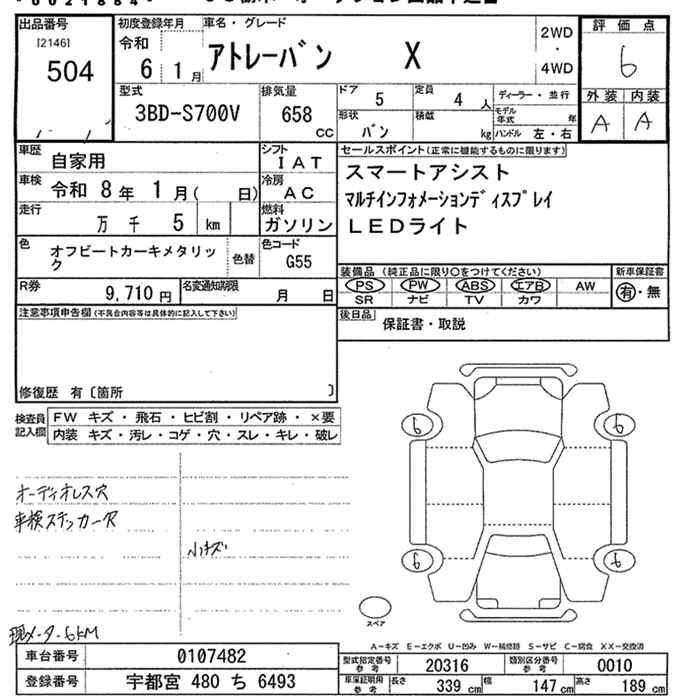 出品番号
[2146]
504
初度登録年月
令和
6 1月
車名・グレード
アトレーバン X
2WD
・
4WD
評価点
6
外装 内装
A A
型式
3BD-S700V
排気量
658
cc
ドア
5
定員
4 人
形状
バン
積載
kg
ディーラー・並行
モデル年式 年
ハンドル 左・右
車歴
自家用
シフト
IAT
車検
令和 8年 1月( 日)
冷房
AC
走行
万 千 5 km
燃料
ガソリン
色
オフビートカーキメタリック
色替
色コード
G55
R券
9,710 円
名変通知期限
月 日
セールスポイント(正常に機能するものに限ります)
スマートアシスト
マルチインフォメーションディスプレイ
LEDライト
装備品(純正品に限り〇をつけてください)
PS PW ABS エアB AW
SR ナビ TV カワ
新車保証書
有・無
後日品
保証書・取説
注意事項申告欄(不具合内容等は具体的に記入して下さい)
修復歴 有〔箇所 〕
検査員記入欄
FW キズ・飛石・ヒビ割・リペア跡・×要
内装 キズ・汚レ・コゲ・穴・スレ・キレ・破レ
オーディオレス穴
車検ステッカー穴
小キズ
現メーター6KM
6 6
6 6
スペア
A-キズ E-エクボ U-凹み W-補修跡 S-サビ C-腐食 XX-交換済
車台番号 0107482
登録番号 宇都宮 480 ち 6493
型式指定番号参考 20316
類別区分番号参考 0010
車庫証明用参考 長さ 339 cm 幅 147 cm 高さ 189 cm